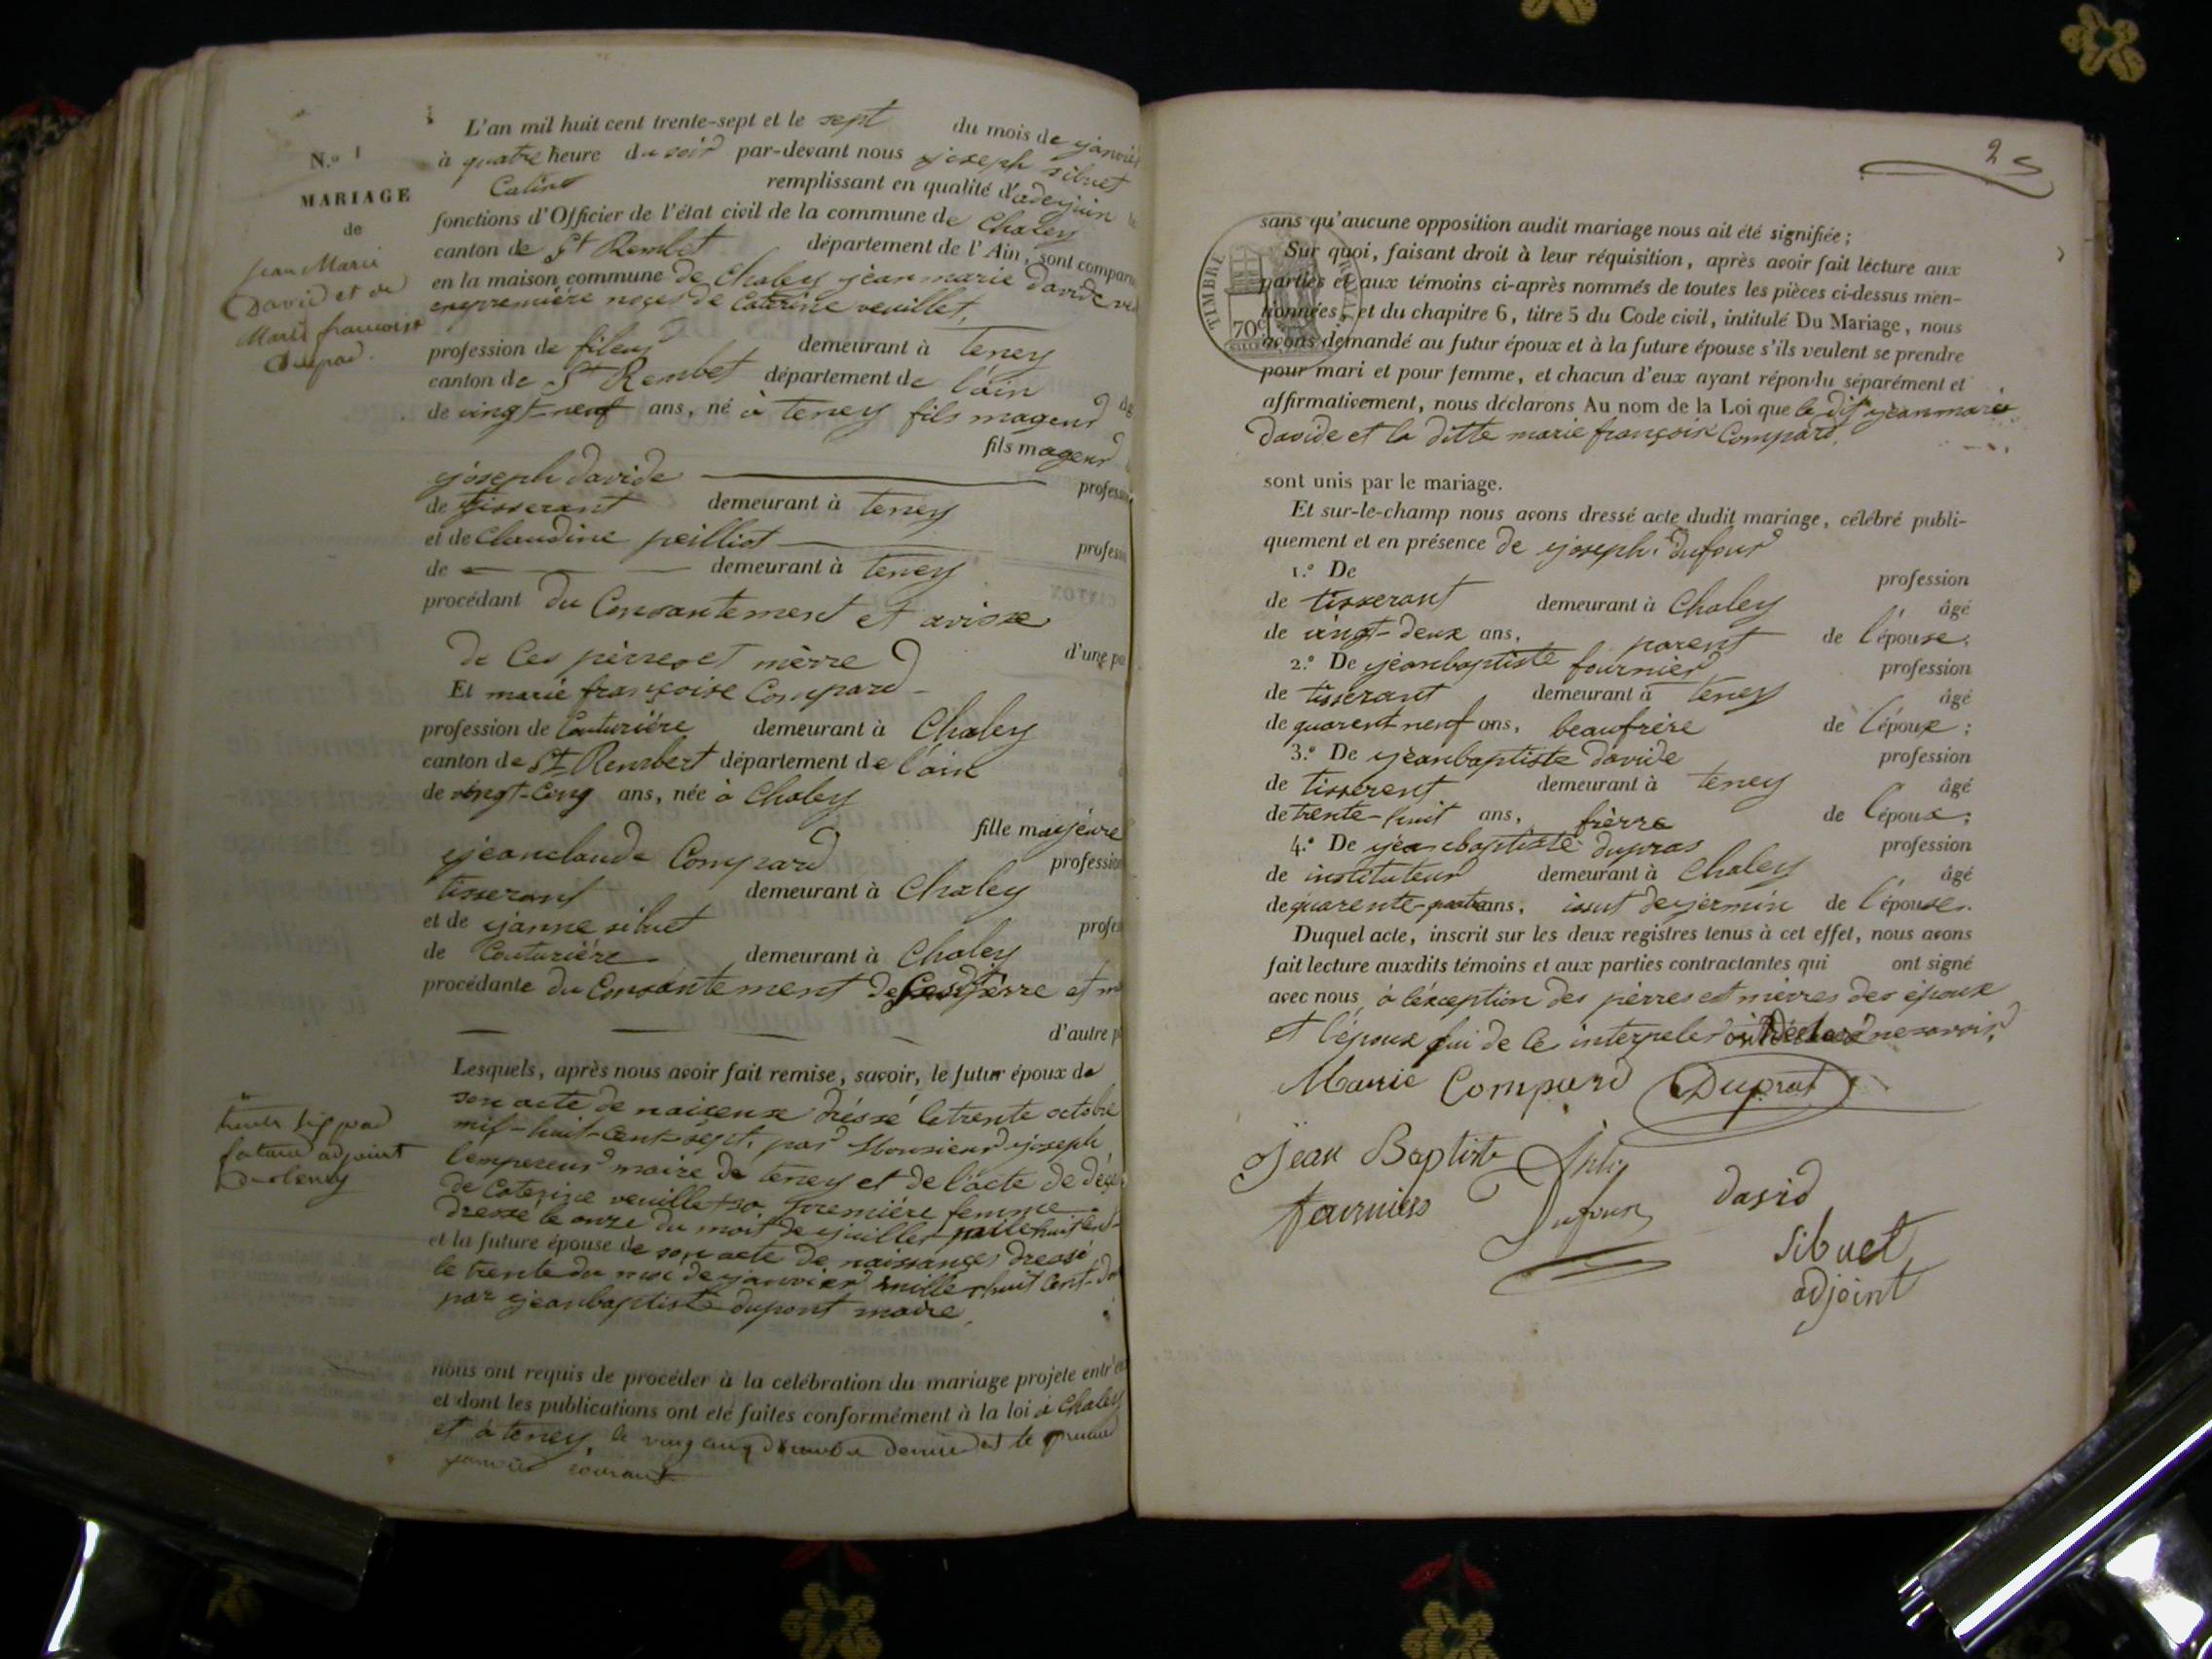 N.º 1
MARIAGE
de
jean Marie
David et de
Marie francoise
Compard.
L'an mil huit cent trente-sept et le sept du mois de ejanvier
à quatre heure du soir par-devant nous ejoseph sibuet
Calino remplissant en qualité d'adejoin
fonctions d'Officier de l'état civil de la commune de Chaley
canton de St Rembet département de l'Ain, sont comparu
en la maison commune de Chaley ejean marie davide
en première noçes de Caterine veuillet,
profession de fileur demeurant à teney
canton de St Rembet département de l'ain
de vingt-neuf ans, né à teney fils mageur
fils mageur
ejoseph davide
de tisserant demeurant à teney
et de Claudine peilliot
de demeurant à teney
procédant du Consantement et avisse
de Ces pèrres et mèrre
Et marie françoise Compard
profession de Couturiére demeurant à Chaley
canton de St Rembert département de l'ain
de vingt-Cinq ans, née à Chaley
fille majeure
ejeanclaude Compard profession
tisserant demeurant à Chaley
et de ejanne sibuet
de Couturiére demeurant à Chaley
procédante du Consantement de pèrre et
d'autre
Lesquels, après nous avoir fait remise, savoir, le futur époux de
son acte de naisense dréssé le trente octobre
mil-huit-Cent-sept. par Monsieur ejoseph
l'empereur maire de teney et de l'acte de
de Caterine veuillet sa première femme
dressé le onze du moit de ejuillet mille huit
et la future épouse de son acte de naissances dressé
le trente du moi de ejanvier mille huit Cent-
par ejeanbaptiste dupont maire,
nous ont requis de procéder à la célébration du mariage projeté entr'eux
et dont les publications ont été faites conformément à la loi à Chaley
et à teney, le vingt cinq décembre dernier et le premier
janvier courant
adjoint
2
TIMBRE ROYAL
70c
sans qu'aucune opposition audit mariage nous ait été signifiée;
Sur quoi, faisant droit à leur réquisition, après avoir fait lecture aux
parties et aux témoins ci-après nommés de toutes les pièces ci-dessus men-
tionnées, et du chapitre 6, titre 5 du Code civil, intitulé Du Mariage, nous
avons demandé au futur époux et à la future épouse s'ils veulent se prendre
pour mari et pour femme, et chacun d'eux ayant répondu séparément et
affirmativement, nous déclarons Au nom de la Loi que le dit ejeanmarie
davide et la ditte marie françoise Compard,
sont unis par le mariage.
Et sur-le-champ nous avons dressé acte dudit mariage, célébré publi-
quement et en présence de ejoseph dufour
1.º De profession
de tisserant demeurant à Chaley âgé
de vingt-deux ans, parent de l'épouse;
2.º De ejeanbaptiste fournier profession
de tisserant demeurant à teney âgé
de quarent neuf ans, beaufrére de l'époux;
3.º De ejeanbaptiste davide profession
de tisserent demeurant à teney âgé
de trente-huit ans, frèrre de l'époux;
4.º De ejeanbaptiste dupras profession
de instituteur demeurant à Chaley âgé
de quarente-quatre ans, issut de ejermin de l'épouse.
Duquel acte, inscrit sur les deux registres tenus à cet effet, nous avons
fait lecture auxdits témoins et aux parties contractantes qui ont signé
avec nous, à léxception des pèrres et mèrres des époux
et l'époux qui de Ce interpeler ont ne savoir,
Marie Compard Duprat
Jean Baptiste
fournier Dufour david
Sibuet,
adjoint